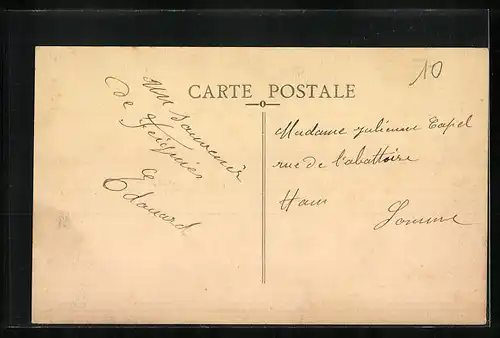 10
CARTE POSTALE
un souvenir
de Feignies
Edouard
Madame Julienne Capel
rue de l'abattoire
Ham
Somme